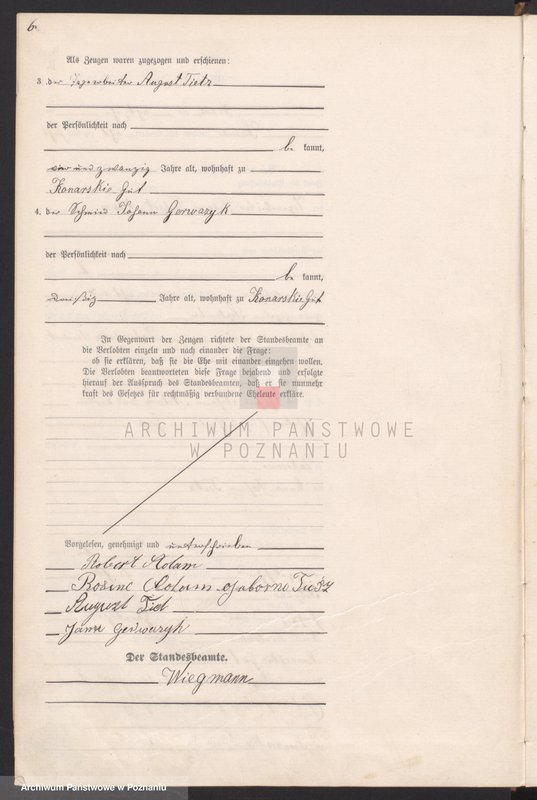 6.
Als Zeugen waren zugezogen und erschienen:
3. der August Tietz
der Persönlichkeit nach
be kannt,
und zwanzig Jahre alt, wohnhaft zu
Konarskie Gut
4. der Schmied Johann Gerwazyk
der Persönlichkeit nach
be kannt,
dreißig Jahre alt, wohnhaft zu Konarskie Gut
In Gegenwart der Zeugen richtete der Standesbeamte an
die Verlobten einzeln und nach einander die Frage:
ob sie erklären, daß sie die Ehe mit einander eingehen wollen.
Die Verlobten beantworteten diese Frage bejahend und erfolgte
hierauf der Ausspruch des Standesbeamten, daß er sie nunmehr
kraft des Gesetzes für rechtmäßig verbundene Eheleute erkläre.
ARCHIWUM PAŃSTWOWE
W POZNANIU
Vorgelesen, genehmigt und unterschrieben
Robert Adam
Adam
August
Gerwazyk
Der Standesbeamte.
Wiegmann
Archiwum Państwowe w Poznaniu